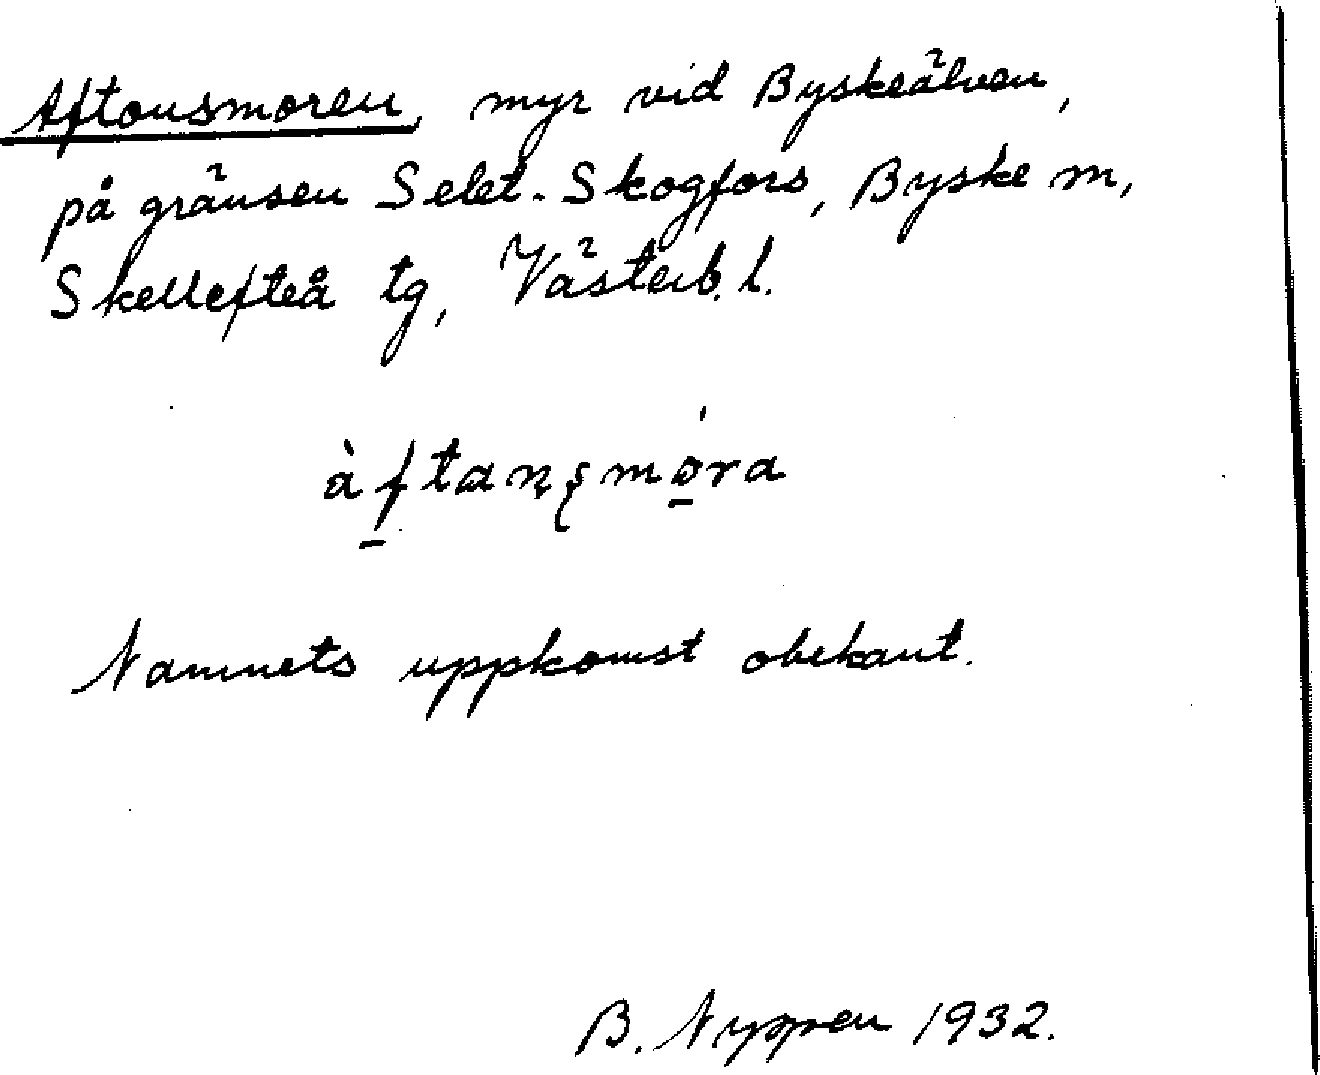 Aftonsmoren, myr vid Byskeälven,
på gränsen Selet-Skogfors, Byske sn,
Skellefteå tg, Västerb. l.
àftansmo̲ra
Namnets uppkomst obekant.
B. Nyppen 1932.